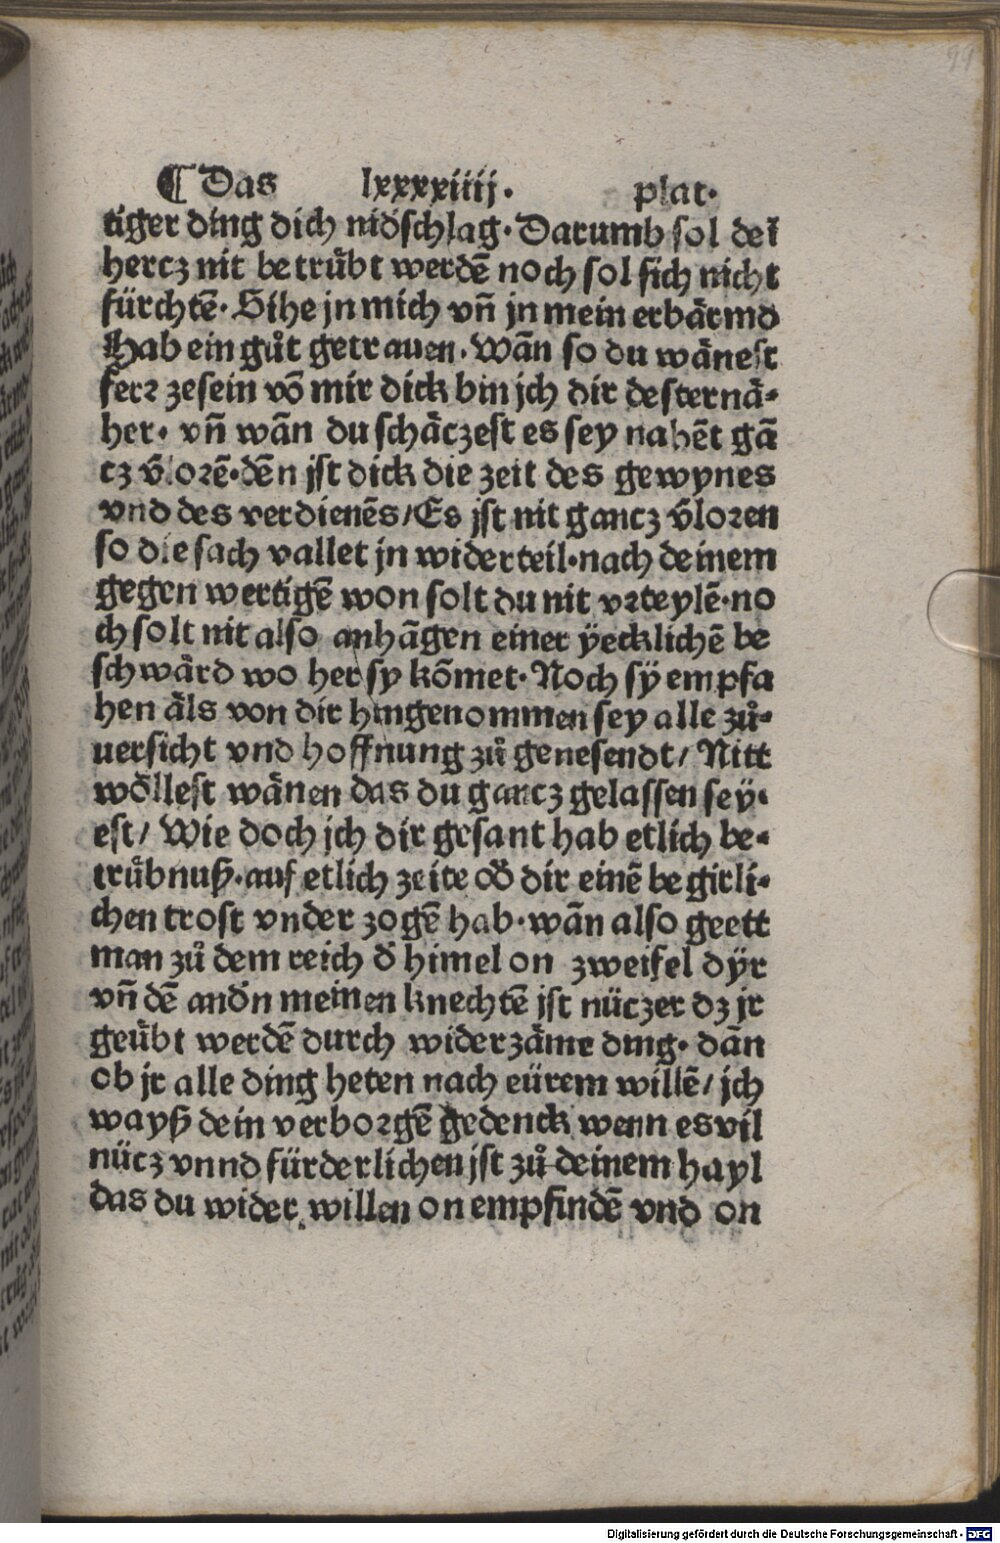 99
¶ Das lxxxxiiij. plat.
tiger ding dich nid̕schlag. Darumb sol deī
hercz nit betruͤbt werdē noch sol sich nicht
fürchtē. Sihe jn mich vn̄ jn mein erbaͤrmd
Hab ein guͦt getrauen. Wān so du waͤnest
ferꝛ zesein vō mir dick bin jch dir desternaͤ⸗
her. vn̄ wān du schaͤczest es sey nahēt gā
cz v̄loꝛē. dēn jst dick die zeit des gewynes
vnd des verdienēs/ Es jst nit gancz v̄loꝛen
so die sach vallet jn widerteil. nach deinem
gegen wertigē won solt du nit vꝛteylē. no
ch solt nit also anhāgen einer ÿecklichē be
schwaͤrd wo her sy kōmet. Noch sÿ empfa
hen aͤls von dir hingenommen sey alle zuͦ⸗
uersicht vnd hoffnung zuͦ genesendt/ Nitt
woͤllest waͤnen das du gancz gelassen sey⸗
est/ Wie doch jch dir gesant hab etlich be⸗
truͤbnuß. auf etlich zeite od̕ dir einē begirli⸗
chen trost vnder zogē hab. wān also geett
man zuͦ dem reich d̕ himel on zweifel dÿr
vn̄ dē and̕n meinen knechtē jst nüczer dz jr
geuͤbt werdē durch widerzaͤme ding. dān
ob jr alle ding heten nach eürem willē/ jch
wayß dein verboꝛgē gedenck wenn es vil
nücz vnnd fürderlichen jst zuͦ deinem hayl
das du wider willen on empfindē vnd on
Digitalisierung gefördert durch die Deutsche Forschungsgemeinschaft - DFG